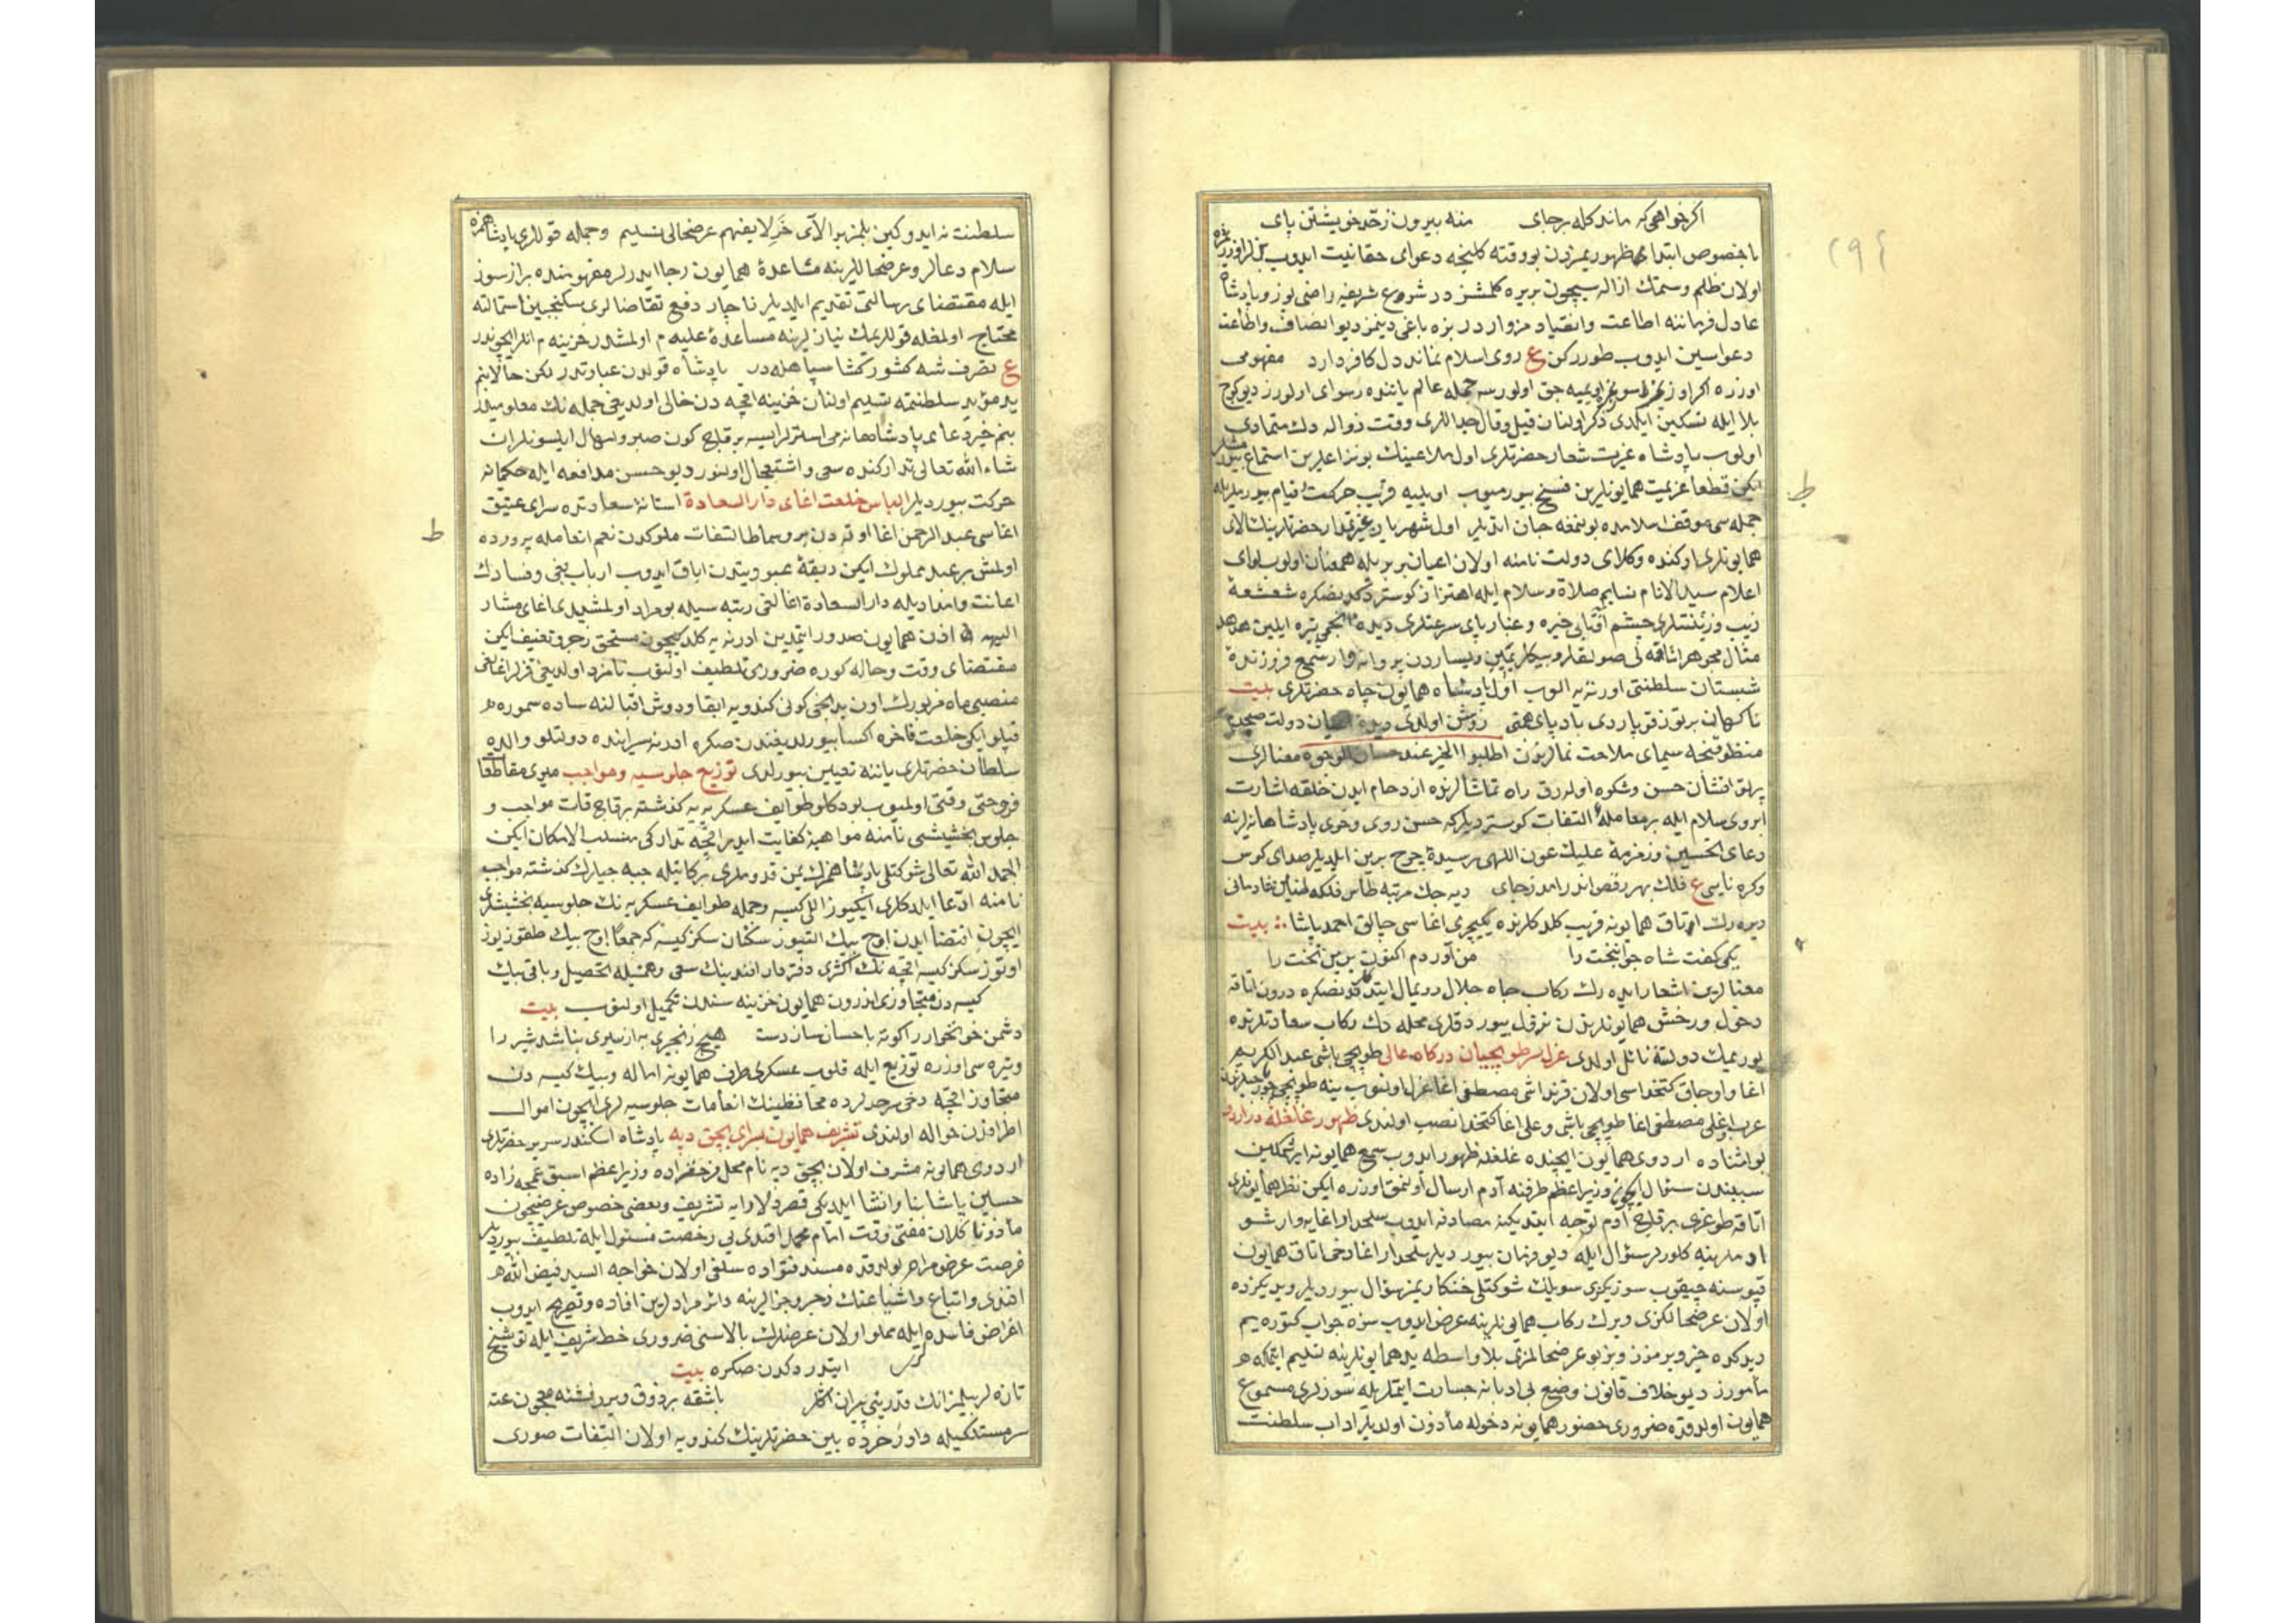 اکر خواهی که ماند کله برجای منه بیرون ز حد خویشتن پای
با خصوص ابتدای ظهوریمزدن بو وقته کلنجه دعوای حقانیت ایدوب
اولان ظلم وستمك ازاله سیچون بریره کلمشز در شرع شریفه راضی یوز و پادشاه
عادل فرماننه اطاعت وانقیاد مزوار در بزه باغی دینمز دیو انصاف واطاعت
دعواسین ایدوب طوررکن ع روی اسلام نماند دل کافر دارد مفهومی
اوزره اکر اوزرمزه سوق اولورسه جمله عالم یاننده رسوای اولورز دیو کوج
بلا ایله تسکین ایلدی ذکر اولنان قیل وقال جدالری وقت زواله دك متمادی
اولوب پادشاه غیرت شعار حضرتلری اول ملاعینك بونزاعلرین استماع
ایکن قطعا عزیمت همایونلرین فسخ بیورمیوب اویلیه قریب حرکت وقیام بیوردیلر
جمله سی موقف سلامده بولنمغه جان اتدیلر اول شهریار حضرتلرینك الای
همایونلری اوکنده وکلای دولت نامنه اولان اعیان بربریله همعنان اولوب لوای
اعلام سیدالانام علیه صلاة وسلام ایله اهتزاز کوستردکدنصکره شعشعهٔ
زیب وزینتلری چشم آفتابی خیره وغبار پای سرعتلری دیدهٔ انجمی تیره ایلین هدهد
مثال مجوهر صولقلر وپیکلر یمین ویساردن پروانه وار شمع فروزندهٔ
شبستان سلطنتی اورتهیه الوب اول پادشاه همایون جاه حضرتلری بیت
ناکهان برتوز قوپاردی بادپای همتی روشن اولدی دیدهٔ اعیان دولت
منظوقنجه سیمای ملاحت نمالرندن اطلبوا الخیر عند حسان الوجوه معنالری
پرتو افشان حسن وشکوه اولەرق راه تماشالرنده ازدحام ایدن خلقه اشارت
ابروی سلام ایله بر معاملهٔ التفات کوستردیلرکه حسن روی وخوی پادشاهانه لرینه
دعای تحسین وزمزمهٔ علیك عون اللهی رسیدهٔ چرخ برین ایلدیلر صدای کوس
وکره نایی ع فلك بهر رقص اندر امد ز جای دیه جك مرتبه طاس فلکه طنین
دیره رك اوتاق همایونه قریب کلدکلرنده یکیچری اغاسی چالق احمد پاشا بیت
یکی کفت شاه جوانبخت را من آوردم اکنون برین تخت را
معنالرین اشعار ایده رك رکاب جاه جلال رویمال ایتدکدنصکره درون اتاقه
دخول ورخش همایونلرندن نزول بیوردقلری محله دك رکاب سعادتلرنده
یوریمك دولتنه نائل اولدی عزل سرطوپچیان درکاه عالی طوپچی باشی عبدالکریم
اغا واوجاق کتخداسی اولان قرنداشی مصطفی اغا عزل اولنوب ینه طوپچی
عرب اوغلی مصطفی اغا طوپچی باشی وعلی اغا کتخدا نصب اولندی ظهور غلغله در اردو
بو اثناده اردوی همایون ایچنده غلغله ظهور ایدوب سمع همایونه ایرشمکلین
سببندن سؤال ایچون وزیراعظم طرفنه آدم ارسال اولنمق اوزره ایکن نظر همایونلری
اتاقه طوغری برقاچ آدم توجه ایتدیکینه مصادفه ایدوب سلحدار اغایه وار شو
ادملر ینه کلورلر سؤال ایله دیو فرمان بیوردیلر سلحدار اغا دخی اتاق همایون
قپوسنه چیقوب سوزیکزی سویلك شوکتلو خنکاریمز سؤال بیوردیلر ویدیکزده
اولان عرضحالکزی ویرك رکاب همایونلرینه عرض ایدوب سزه جواب کتوره یم
دیدکده خیر ویرمزز وبز بو عرضحالمزی بلاواسطه ید همایونلرینه تسلیم ایتمکه
مأمورز دیو خلاف قانون وضع بی ادبانه جسارت ایتمکلریله سوزلری مسموع
همایون اولدقده ضروری حضور همایونه دخوله مأذون اولدیلر اداب سلطنت
سلطنت نه ایدوکین بلمز برالآی خر لایفهم عرضحالی تسلیم وجمله قوللری پادشاهمزه
سلام دعالر وعرضحاللرینه مساعدهٔ همایون رجا ایدرلر مفهومنده براز سوز
ایله مقتضای رسالتی تقدیم ایلدیلر ناچار دفع تقاضالری سکنجبین استمالته
محتاج اولمغله قوللریمك نیازلرینه مساعدهٔ علیه م اولمشدر خزینه م انلر ایچوندر
ع تصرف شه کشورکشا سپاهله در پادشاه قولدن عبارتدر لکن حالا بنم
ید مؤید سلطنتمه تسلیم اولنان خزینه اقچه دن خالی اولدیغی جمله نك معلومیدر
بنم خیردعای پادشاهانه می استرلر ایسه برقاچ کون صبر وامهال ایلسونلر ان
شاءالله تعالی تدارکنده سعی واشتعجال اولنور دیو حسن مدافعه ایله حکمانه
حرکت بیوردیلر الباس خلعت اغای دار السعادة استانهٔ سعادتده سرای عتیق
اغاسی عبدالرحمن اغا اوته دن برو سماط التفات ملوکدن نعم انعامله پرورده
اولمش بر عبد مملوك ایکن ربقهٔ عبودیتدن اباق ایدوب ارباب بغی وفسادك
اعانت وامدادیله دارالسعادة اغالغی رتبه سیله بومراد اولمشیدی اغای مشار
الیهه اذن همایون صدور ایتمدین ادرنه یه کلدیکیچون مستحق زجر وتعنیف ایکن
مقتضای وقت وحاله کوره ضروری تلطیف اولنوب نامزد اولدیغی قزلر اغالغی
منصبی ماه مزبورك اون یدنجی کونی کندویه ابقا ودوش اقبالنه ساده سموره
قپلو ایکی خلعت فاخره اکسا بیورلدیغندن صکره ادرنه سراینده دولتلو والده
سلطان حضرتلری یاننه تعیین بیورلدی توزیع جلوسیه ومواجب میری مقاطعا
فروختی وقتی اولمیوب بودکلو طوایف عسکریه یه کذشته برقاچ قات مواجب و
جلوس بخشیشی نامنه مواهبنه کفایت ایدر اقچه تدارکی منسلب الامکان ایکن
الحمدالله تعالی شوکتلی پادشاهمزك یمن قدوملری برکاتیله جبه جیلرك کذشته مواجب
نامنه ادعا ایلدکلری ایکیوز اللی کیسه وجمله طوایف عسکریه نك جلوسیه بخشیشلری
ایچون اقتضا ایدن اوچ بیك التیوز سکسان سکز کیسه که جمعا اوچ بیك طقوز یوز
اوتوز سکز کیسه اقچه نك اکثری دفتردار افندینك سعی وهمتیله تحصیل وباقی بیك
کیسه دن متجاوزی اندرون همایون خزینه سندن تکمیل اولنوب بیت
دشمن خونخوار را کوته باحسان ساز دست هیچ زنجیری به از سیری نباشد شیر را
وتیره سی اوزره توزیع ایله قلوب عسکری طرف همایونه اماله وبیك کیسه دن
متجاوز اقچه دخی سرحدلرده محافظینك انعامات جلوسیه لری ایچون اموال
اطرافدن حواله اولندی تشریف همایون بسرای بچق دپه پادشاه اسکندر سریر حضرتلری
اردوی همایونه مشرف اولان بچق دپه نام محل فرحفزاده وزیر اعظم اسبق عمجه زاده
حسین پاشا بنا وانشا ایلدیکی قصر دلارایه تشریف وبعضی خصوص عرضیچون
مأذونا کلان مفتئ وقت امام محمد افندی یی رخصت مسئول ایله تلطیف بیوردیلر
فرصت عرض مرام بولدقده مسند فتواده سلفی اولان خواجه السید فیض الله
افندی واتباع واشیاعنك زجر وجزالرینه دائر مرادلرین افاده وتصریح ایدوب
اغراض فاسده ایله مملو اولان عرضلرك بالاسنی ضروری خط شریف ایله توشیح
ایتدردکدن صکره بیت
تازه لر بیلمز انك قدرینی پیران اکلر باشقه بر ذوق ویرر نشئه معجون عته
سرمستلکیله داور خرده بین حضرتلرینك کندویه اولان التفات صوری